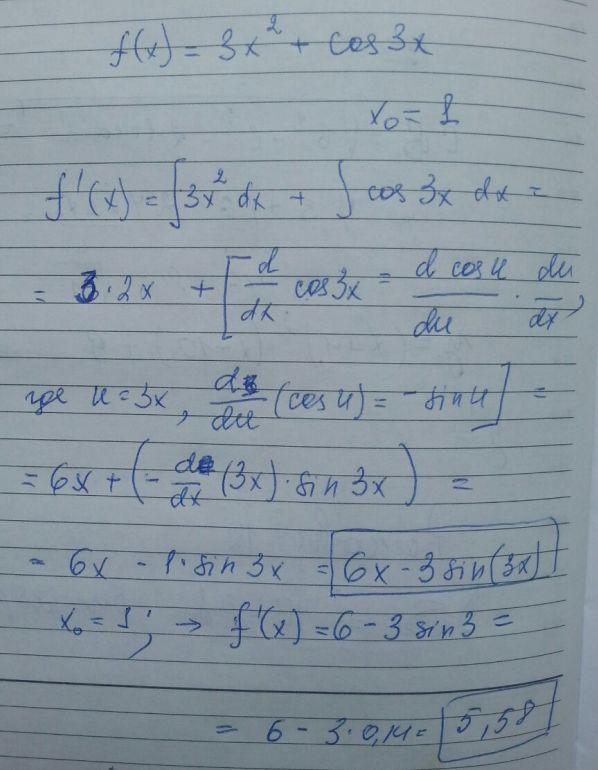 f(x) = 3x² + cos 3x
x₀ = 1
f'(x) = ∫3x² dx + ∫ cos 3x dx =
= 3·2x + [d/dx cos 3x = d cos u/du · du/dx,
где u = 3x, d/du (cos u) = - sin u] =
= 6x + (- d/dx (3x) · sin 3x) =
= 6x - 1·sin 3x = 6x - 3 sin(3x)
x₀ = 1; → f'(x) = 6 - 3 sin 3 =
= 6 - 3·0,14 = 5,58